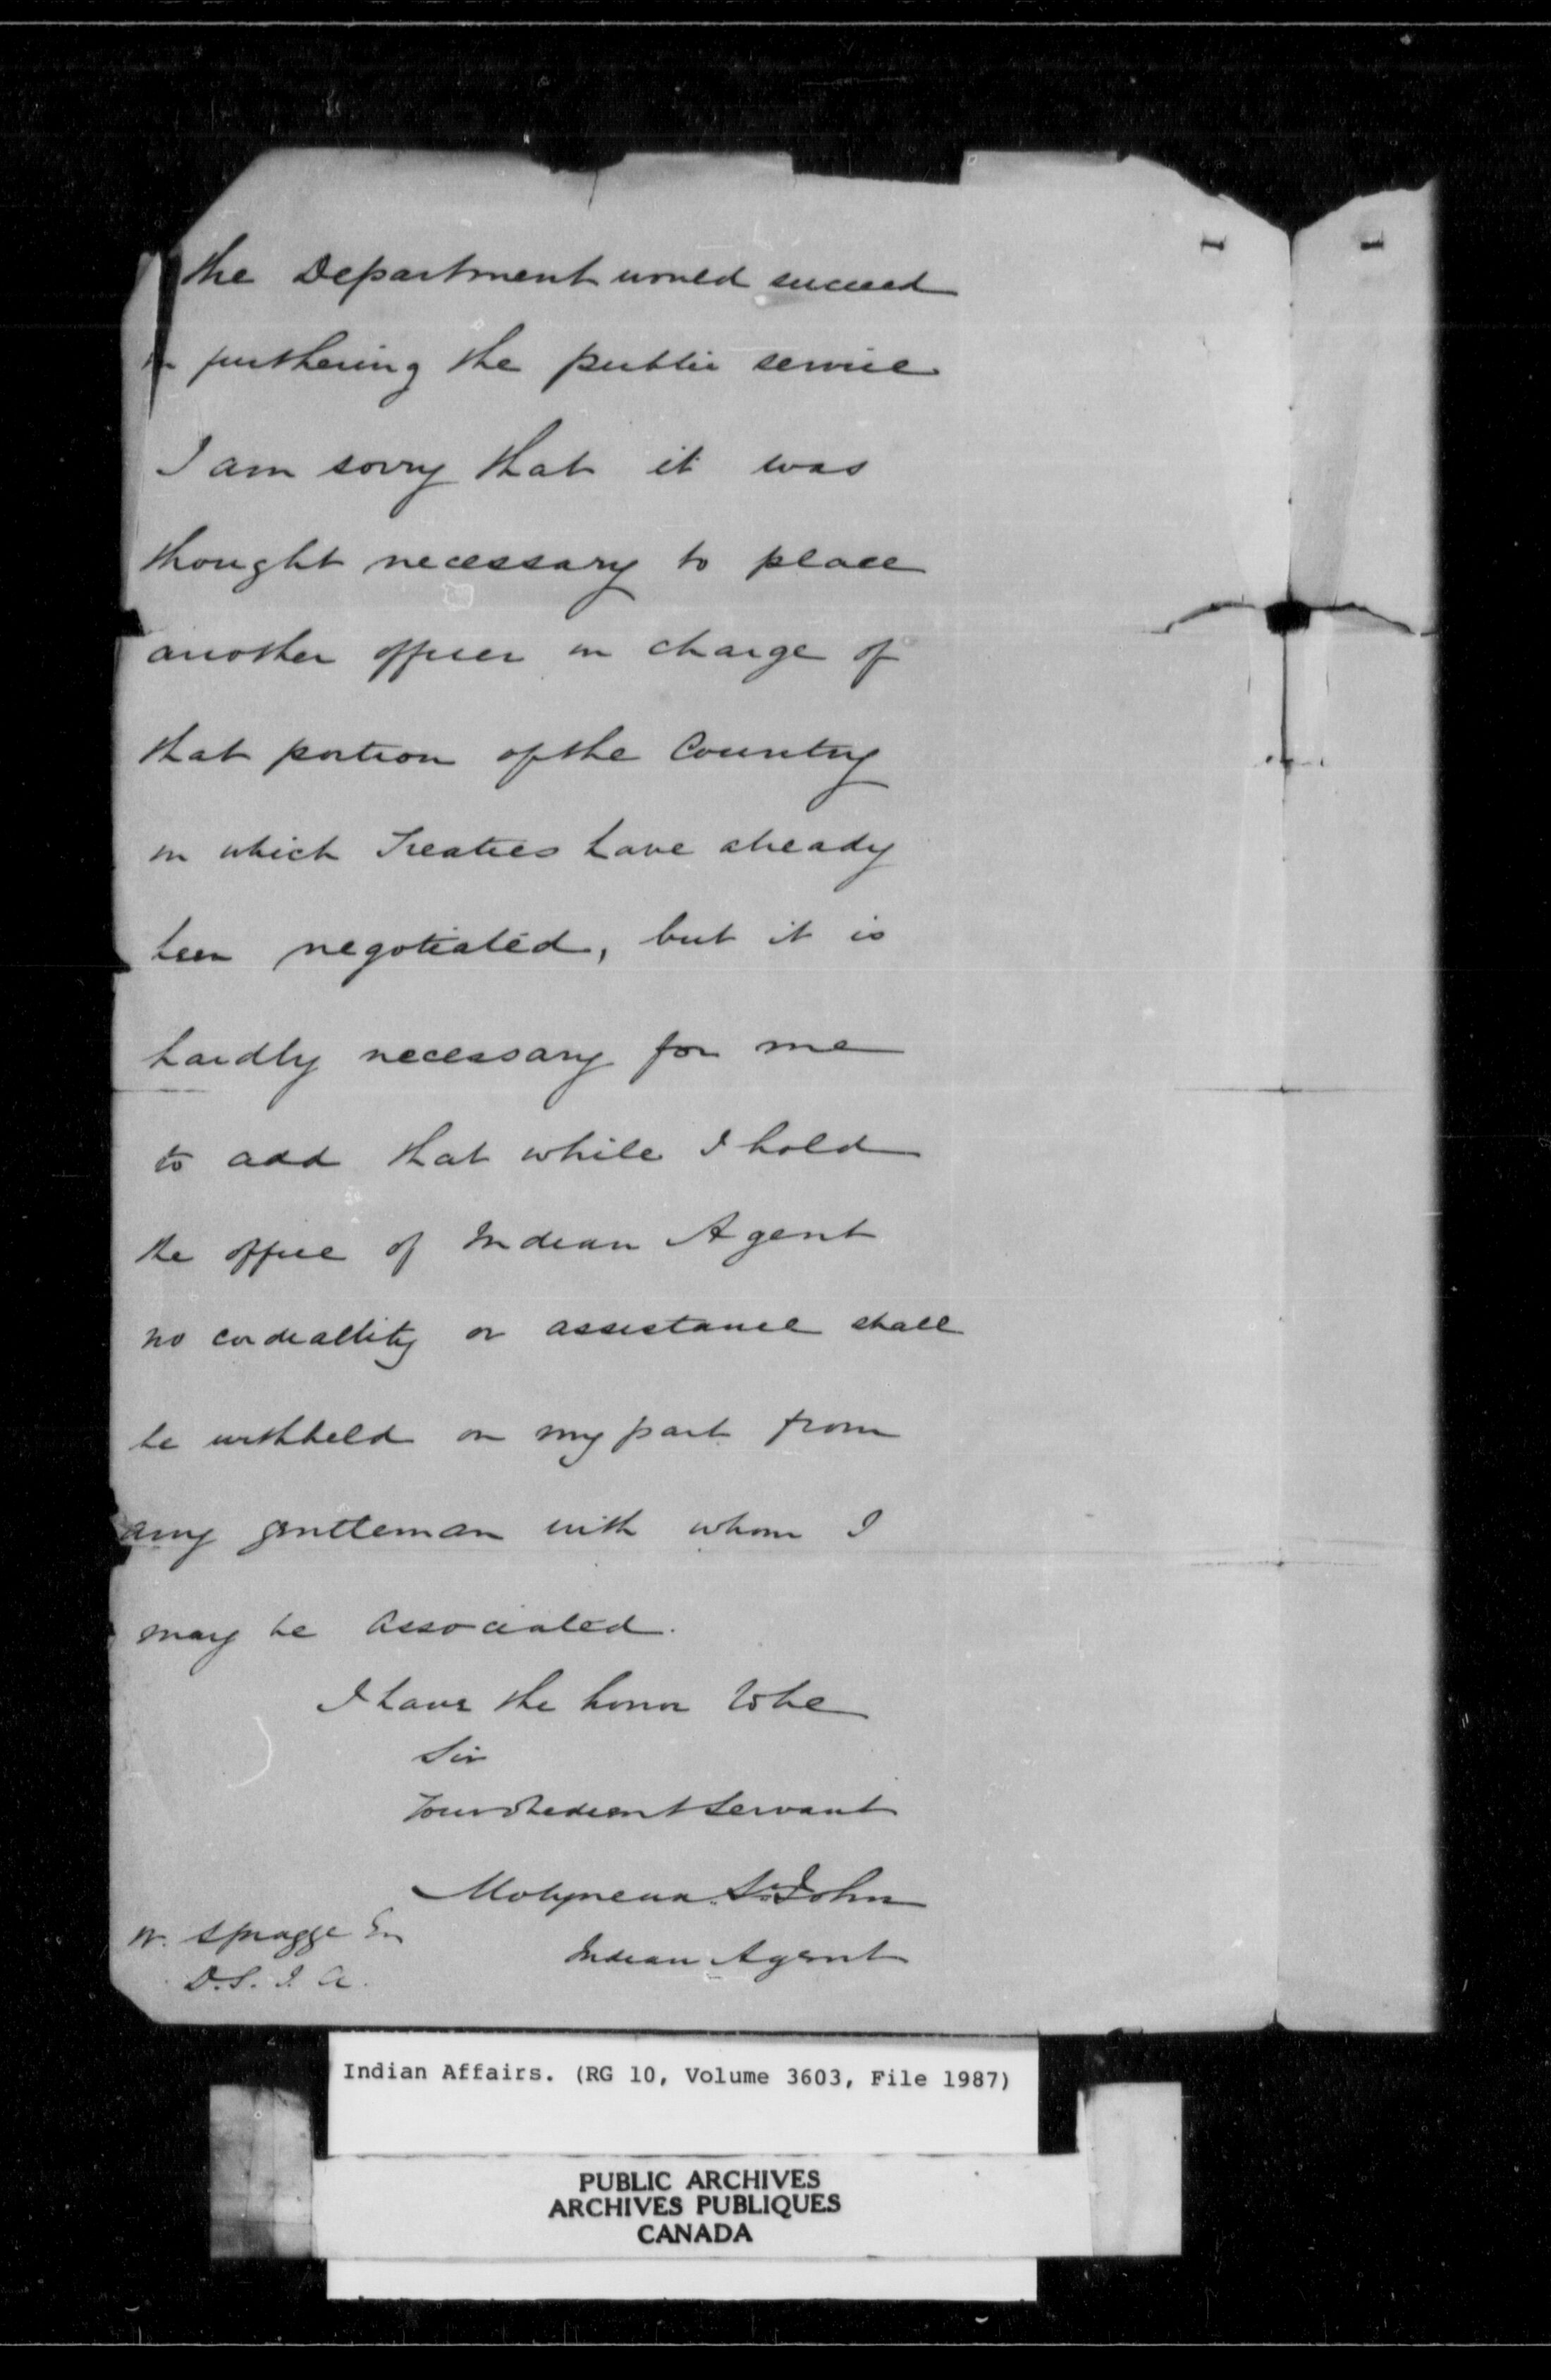 the Department would succeed
in furthering the public service
I am sorry that it was
thought necessary to place
another officer in charge of
that portion of the Country
in which Treaties have already
been negotiated, but it is
hardly necessary for me
to add that while I hold
the office of Indian Agent
no cordiallity or assistance shall
be withheld on my part from
any gentleman with whom I
may be associated.
I have the honor to be
Sir
Your obedient Servant
Molyneux St John
Indian Agent
W. Spragge Esq
D.S. I. A.
Indian Affairs. (RG 10, Volume 3603, File 1987)
PUBLIC ARCHIVES
ARCHIVES PUBLIQUES
CANADA